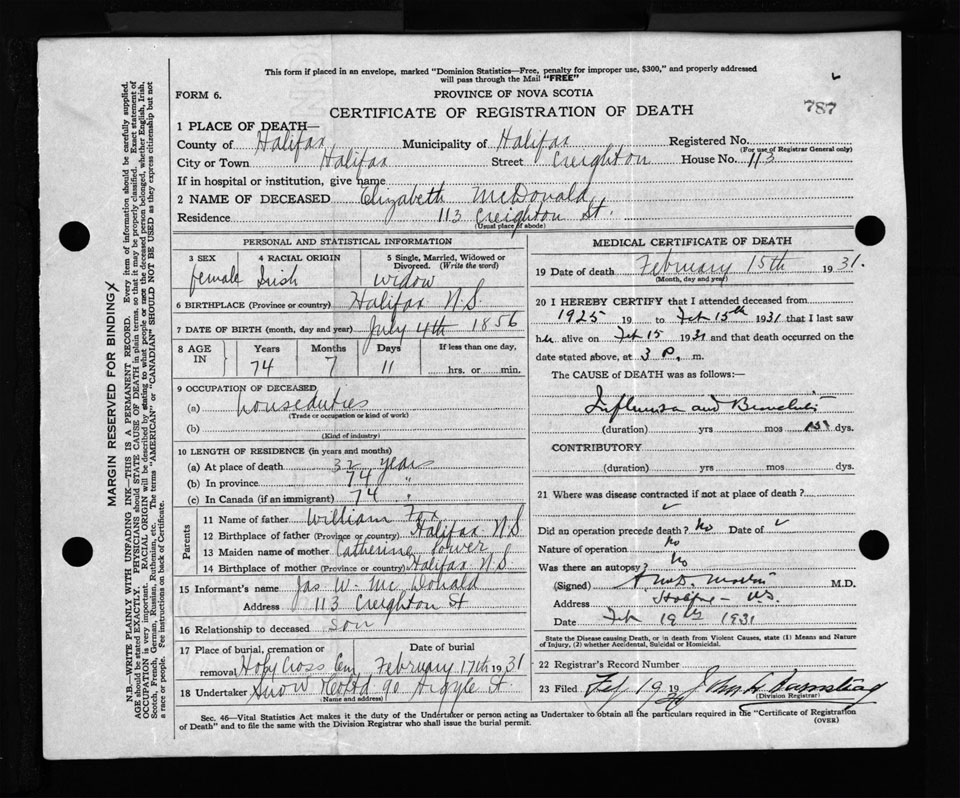 This form if placed in an envelope, marked "Dominion Statistics—Free, penalty for improper use, $300," and properly addressed
will pass through the Mail "FREE"
FORM 6.
PROVINCE OF NOVA SCOTIA
787
CERTIFICATE OF REGISTRATION OF DEATH
1 PLACE OF DEATH—
County of Halifax Municipality of Halifax Registered No.
(For use of Registrar General only)
City or Town Halifax Street Creighton House No. 113
If in hospital or institution, give name
2 NAME OF DECEASED Elizabeth McDonald
Residence 113 Creighton St.
(Usual place of abode)
PERSONAL AND STATISTICAL INFORMATION
3 SEX 4 RACIAL ORIGIN 5 Single, Married, Widowed or
Divorced. (Write the word)
female Irish widow
6 BIRTHPLACE (Province or country) Halifax N.S.
7 DATE OF BIRTH (month, day and year) July 4th 1856
8 AGE IN Years Months Days If less than one day,
74 7 11 hrs. or min.
9 OCCUPATION OF DECEASED
(a) houseduties
(Trade or occupation or kind of work)
(b)
(Kind of industry)
10 LENGTH OF RESIDENCE (in years and months)
(a) At place of death 32 years
(b) In province 74 "
(c) In Canada (if an immigrant) 74 "
Parents
11 Name of father William Fox
12 Birthplace of father (Province or country) Halifax N S
13 Maiden name of mother Catherine Power
14 Birthplace of mother (Province or country) Halifax N S
15 Informant's name Jas W. Mc Donald
Address 113 Creighton St
16 Relationship to deceased son
17 Place of burial, cremation or Date of burial
removal Holy Cross Cem February 17th 1931
18 Undertaker Snow &Co Ltd 90 Argyle St.
(Name and address)
MEDICAL CERTIFICATE OF DEATH
19 Date of death February 15th 1931.
(Month, day and year)
20 I HEREBY CERTIFY that I attended deceased from
1925 19 to Feb 15th 1931 that I last saw
her alive on Feb 15 1931 and that death occurred on the
date stated above, at 3 P. m.
The CAUSE OF DEATH was as follows:—
Influenza and Bronchitis
(duration) yrs mos dys.
CONTRIBUTORY
(duration) yrs mos dys.
21 Where was disease contracted if not at place of death?
Did an operation precede death? No Date of
Nature of operation No
Was there an autopsy? No
(Signed) M.D.
Address Halifax - N.S.
Date Feb 19th 1931
State the Disease causing Death, or in death from Violent Causes, state (1) Means and Nature
of Injury, (2) whether Accidental, Suicidal or Homicidal.
22 Registrar's Record Number
23 Filed Feb 19 19
(Division Registrar)
Sec. 46—Vital Statistics Act makes it the duty of the Undertaker or person acting as Undertaker to obtain all the particulars required in the "Certificate of Registration
of Death" and to file the same with the Division Registrar who shall issue the burial permit.
(OVER)
MARGIN RESERVED FOR BINDING
N.B.—WRITE PLAINLY WITH UNFADING INK—THIS IS A PERMANENT RECORD. Every item of information should be carefully supplied.
AGE should be stated EXACTLY. PHYSICIANS should STATE CAUSE OF DEATH in plain terms, so that it may be properly classified. Exact statement of
OCCUPATION is very important. RACIAL ORIGIN will be described by stating to what people or race the deceased person belonged, whether English, Irish,
Scotch, French, German, Russian, Ruthenian, etc. The terms "AMERICAN" or "CANADIAN" SHOULD NOT BE USED as they express citizenship but not
a race or people. Fee instructions on back of Certificate.